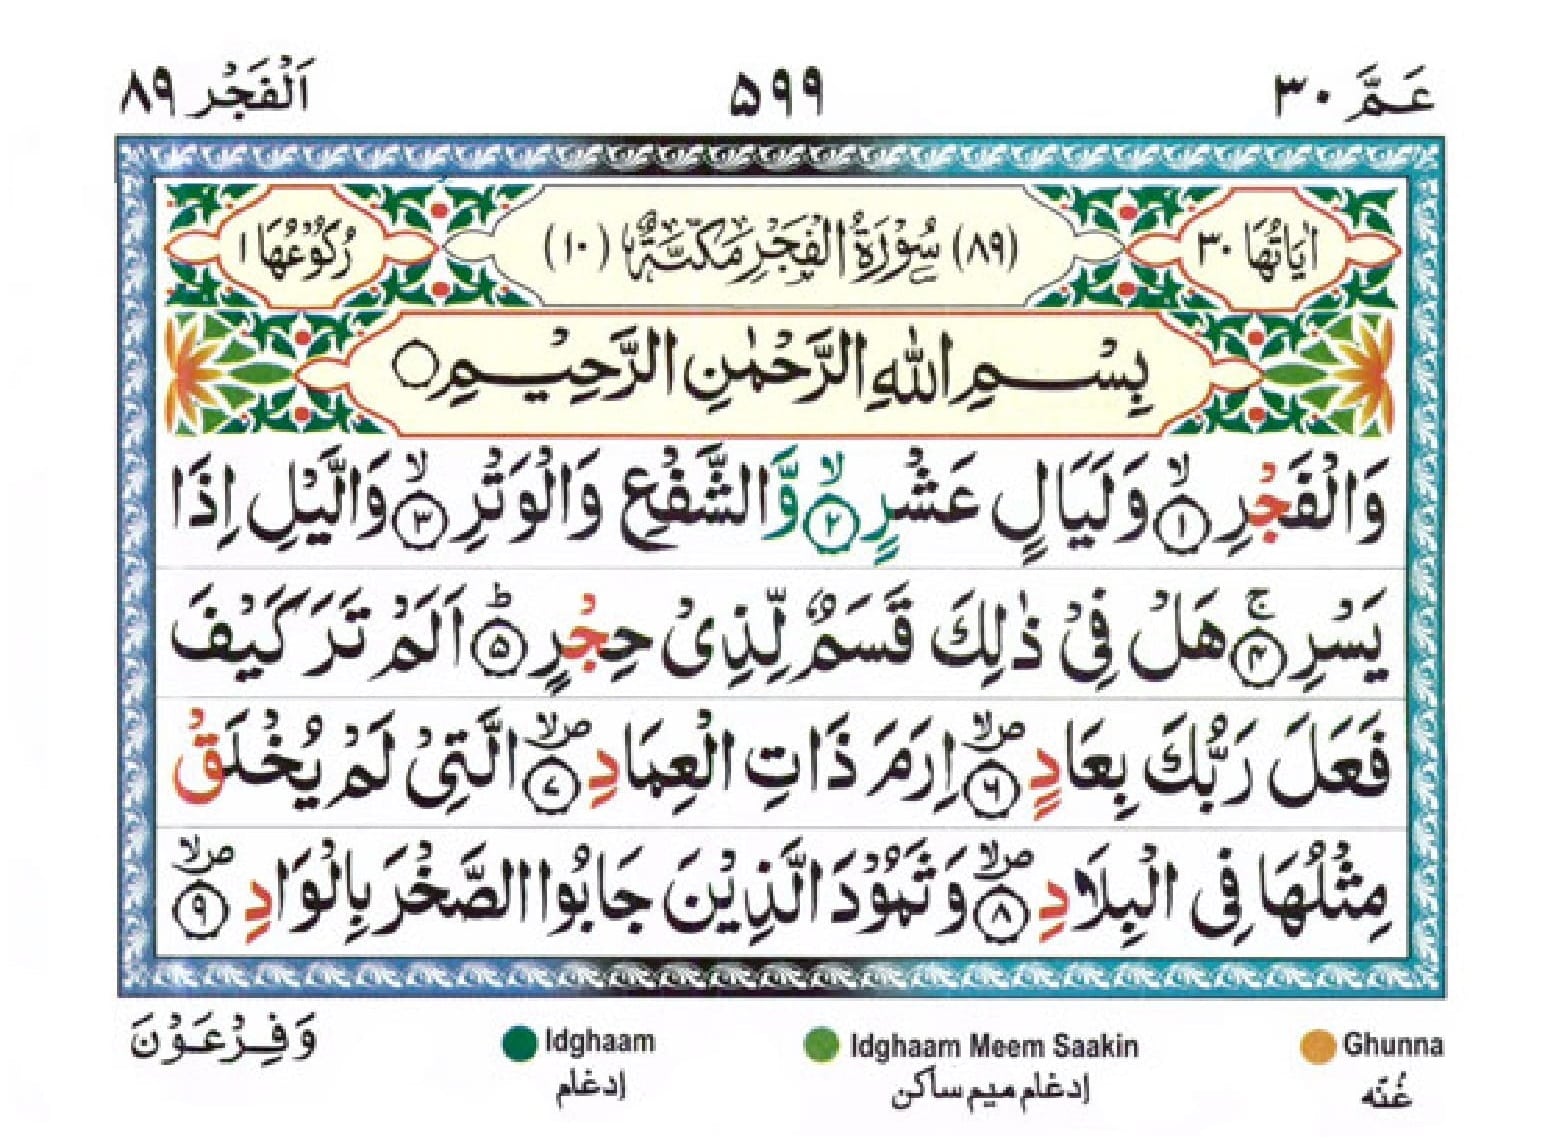 عَمَّ ٣٠ ۵۹۹ اَلْفَجْر ٨٩
اٰيَاتُهَا ٣٠ (٨٩) سُوْرَةُ الْفَجْرِ مَكِّيَّةٌ (١٠) رُكُوْعُهَا ١
بِسْمِ اللّٰهِ الرَّحْمٰنِ الرَّحِيْمِ ○
وَالْفَجْرِ ۙ﴿١﴾ وَلَيَالٍ عَشْرٍ ۙ﴿٢﴾ وَّالشَّفْعِ وَالْوَتْرِ ۙ﴿٣﴾ وَالَّيْلِ اِذَا
يَسْرِ ۚ﴿۴﴾ هَلْ فِىْ ذٰلِكَ قَسَمٌ لِّذِىْ حِجْرٍ ؕ﴿۵﴾ اَلَمْ تَرَ كَيْفَ
فَعَلَ رَبُّكَ بِعَادٍ ۪ۙ﴿۶﴾ اِرَمَ ذَاتِ الْعِمَادِ ۪ۙ﴿۷﴾ الَّتِىْ لَمْ يُخْلَقْ
مِثْلُهَا فِى الْبِلَادِ ۪ۙ﴿۸﴾ وَثَمُوْدَ الَّذِيْنَ جَابُوا الصَّخْرَ بِالْوَادِ ۪ۙ﴿۹﴾
وَفِرْعَوْنَ
Ghunna Idghaam Meem Saakin Idghaam
غُنّه ادغام ميم ساكن ادغام